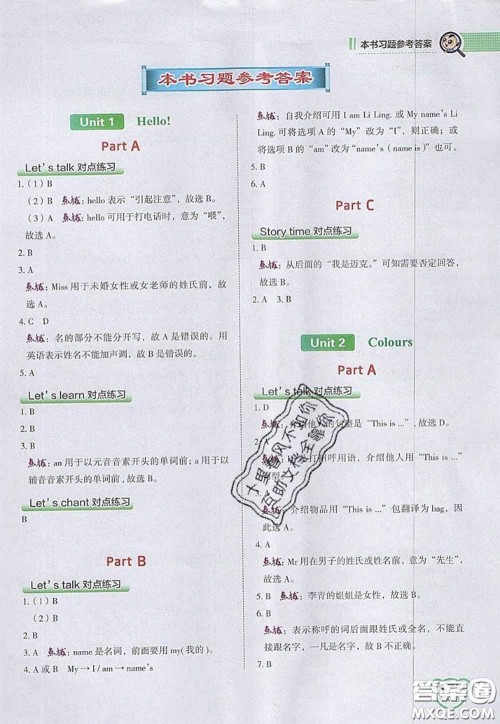 本书习题参考答案
本书习题参考答案
Unit 1 Hello!
Part A
Let's talk 对点练习
1. (1) B
(2) B 点拨: hello 表示“引起注意”, 故选 B。
(3) A 点拨: hello 可用于打电话时, 意为“喂”,
故选 A。
2. B
3. A
点拨: Miss 用于未婚女性或女老师的姓氏前, 故
选 A。
4. C D
点拨: 名的部分不能分开写, 故 A 是错误的。用
英语表示姓名不能加声调, 故 B 是错误的。
Let's learn 对点练习
1. B
2. B
3. B
点拨: an 用于以元音音素开头的单词前; a 用于以
辅音音素开头的单词前。
Let's chant 对点练习
B
Part B
Let's talk 对点练习
1. (1) B
(2) B
2. A
3. B
点拨: name 是名词, 前面要用 my(我的)。
4. A 或 B My→I / am→name's
点拨: 自我介绍可用 I am Li Ling. 或 My name's Li
Ling. 可将选项 A 的 “My” 改为 “I”, 则正确; 或
将选项 B 的 “am” 改为 “name's” 也可。
5. B
6. B
Part C
Story time 对点练习
1. B
点拨: 从后面的 “我是迈克。” 可知需要否定回答,
故选 B。
2. A 3. B
Unit 2 Colours
Part A
Let's talk 对点练习
1. B
点拨: 介绍他人的句型是 “This is ...”, 故选 D。
2. B
点拨: 打招呼用语, 介绍他人用 “This is ...”,
故选 B。
3. A
点拨: 介绍物品用 “This is ...” 包翻译为 bag, 因
此选 A。
4. A
点拨: Mr 用在男子的姓氏或姓名前, 意为 “先生”,
故选 A。
5. B
6. B 点拨: 李青的姐姐是女性, 故选 B。
点拨: 表示称呼的词后面跟姓氏或全名, 不能直接
跟名字, 一凡是名字, 故不选 B。
7. B
十里春风不如你
互助文档全靠你
答案圈
MXQE.COM